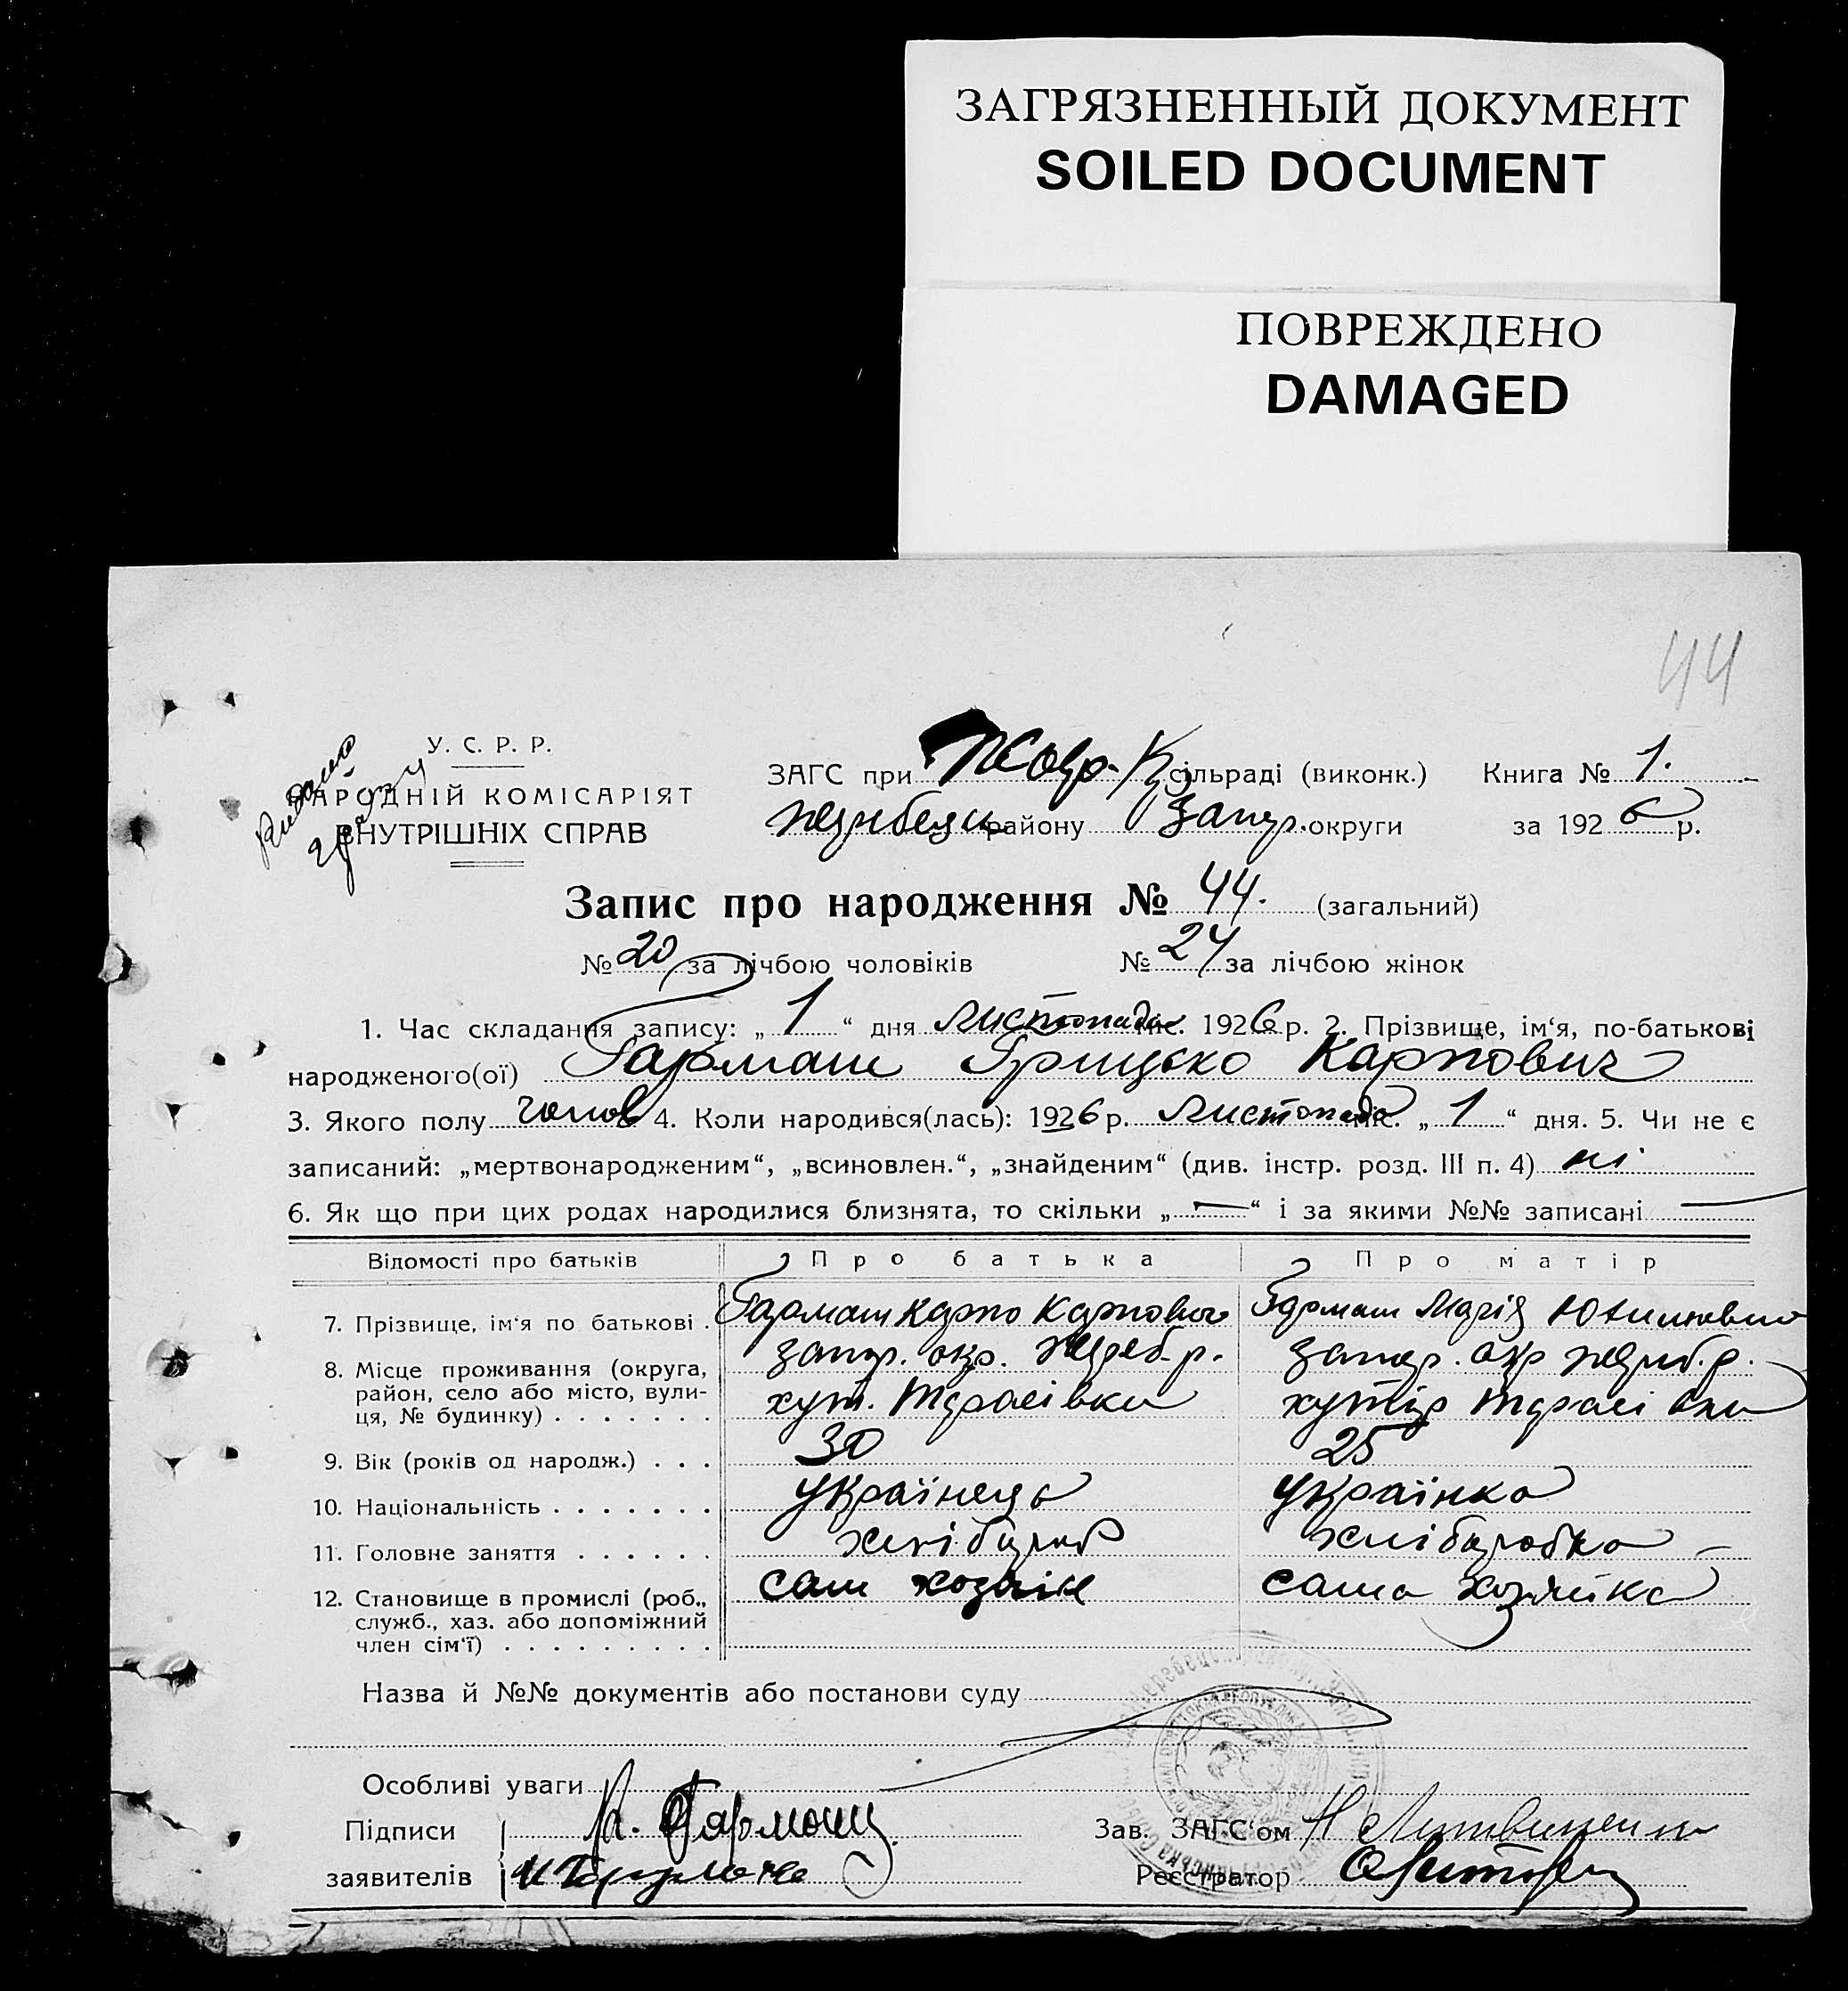 ЗАГРЯЗНЕННЫЙ ДОКУМЕНТ
SOILED DOCUMENT
ПОВРЕЖДЕНО
DAMAGED
44
У. С. Р. Р.
НАРОДНІЙ КОМІСАРІЯТ
ВНУТРІШНІХ СПРАВ
ЗАГС при сільраді (виконк.) Книга № 1.
району Запор. округи за 1926 р.
Запис про народження № 44. (загальний)
№ 20 за лічбою чоловіків № 24 за лічбою жінок
1. Час складання запису: „ 1 “ дня листопада міс. 1926 р. 2. Прізвище, ім‘я, по-батькові
народженого(ої) Гармаш Грицько Карпович
3. Якого полу чолов 4. Коли народився(лась): 1926 р. листопада міс. „ 1 “ дня. 5. Чи не є
записаний: „мертвонародженим“, „всиновлен.“, „знайденим“ (див. інстр. розд. III п. 4) ні
6. Як що при цих родах народилися близнята, то скільки „ — “ і за якими №№ записані —
Відомості про батьків Про батька Про матір
7. Прізвище, ім‘я по батькові . Гармаш Карпо Карпович Гармаш Марія
8. Місце проживання (округа, запор. окр. р. запор. окр р.
район, село або місто, вули- хут. Тарасівка хутір Тарасівка
ця, № будинку) . . . . . . .
9. Вік (років од народж.) . . . 30 25
10. Національність . . . . . . . українець українка
11. Головне заняття . . . . . . хлібороб хліборобка
12. Становище в промислі (роб., сам хозяін сама хозяйка
служб., хаз. або допоміжний
член сім‘ї) . . . . . . . . .
Назва й №№ документів або постанови суду
Особливі уваги
Підписи К. Гармаш Зав. ЗАГС‘ом Н Литвиненко
заявителів Реєстратор